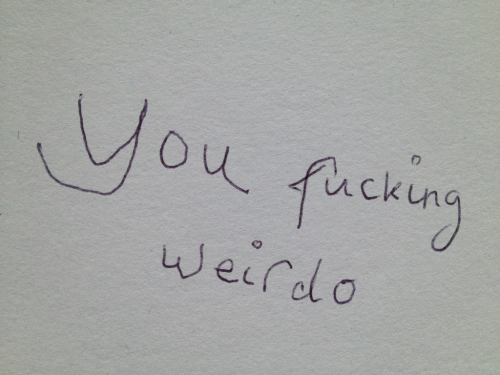 You fucking
weirdo